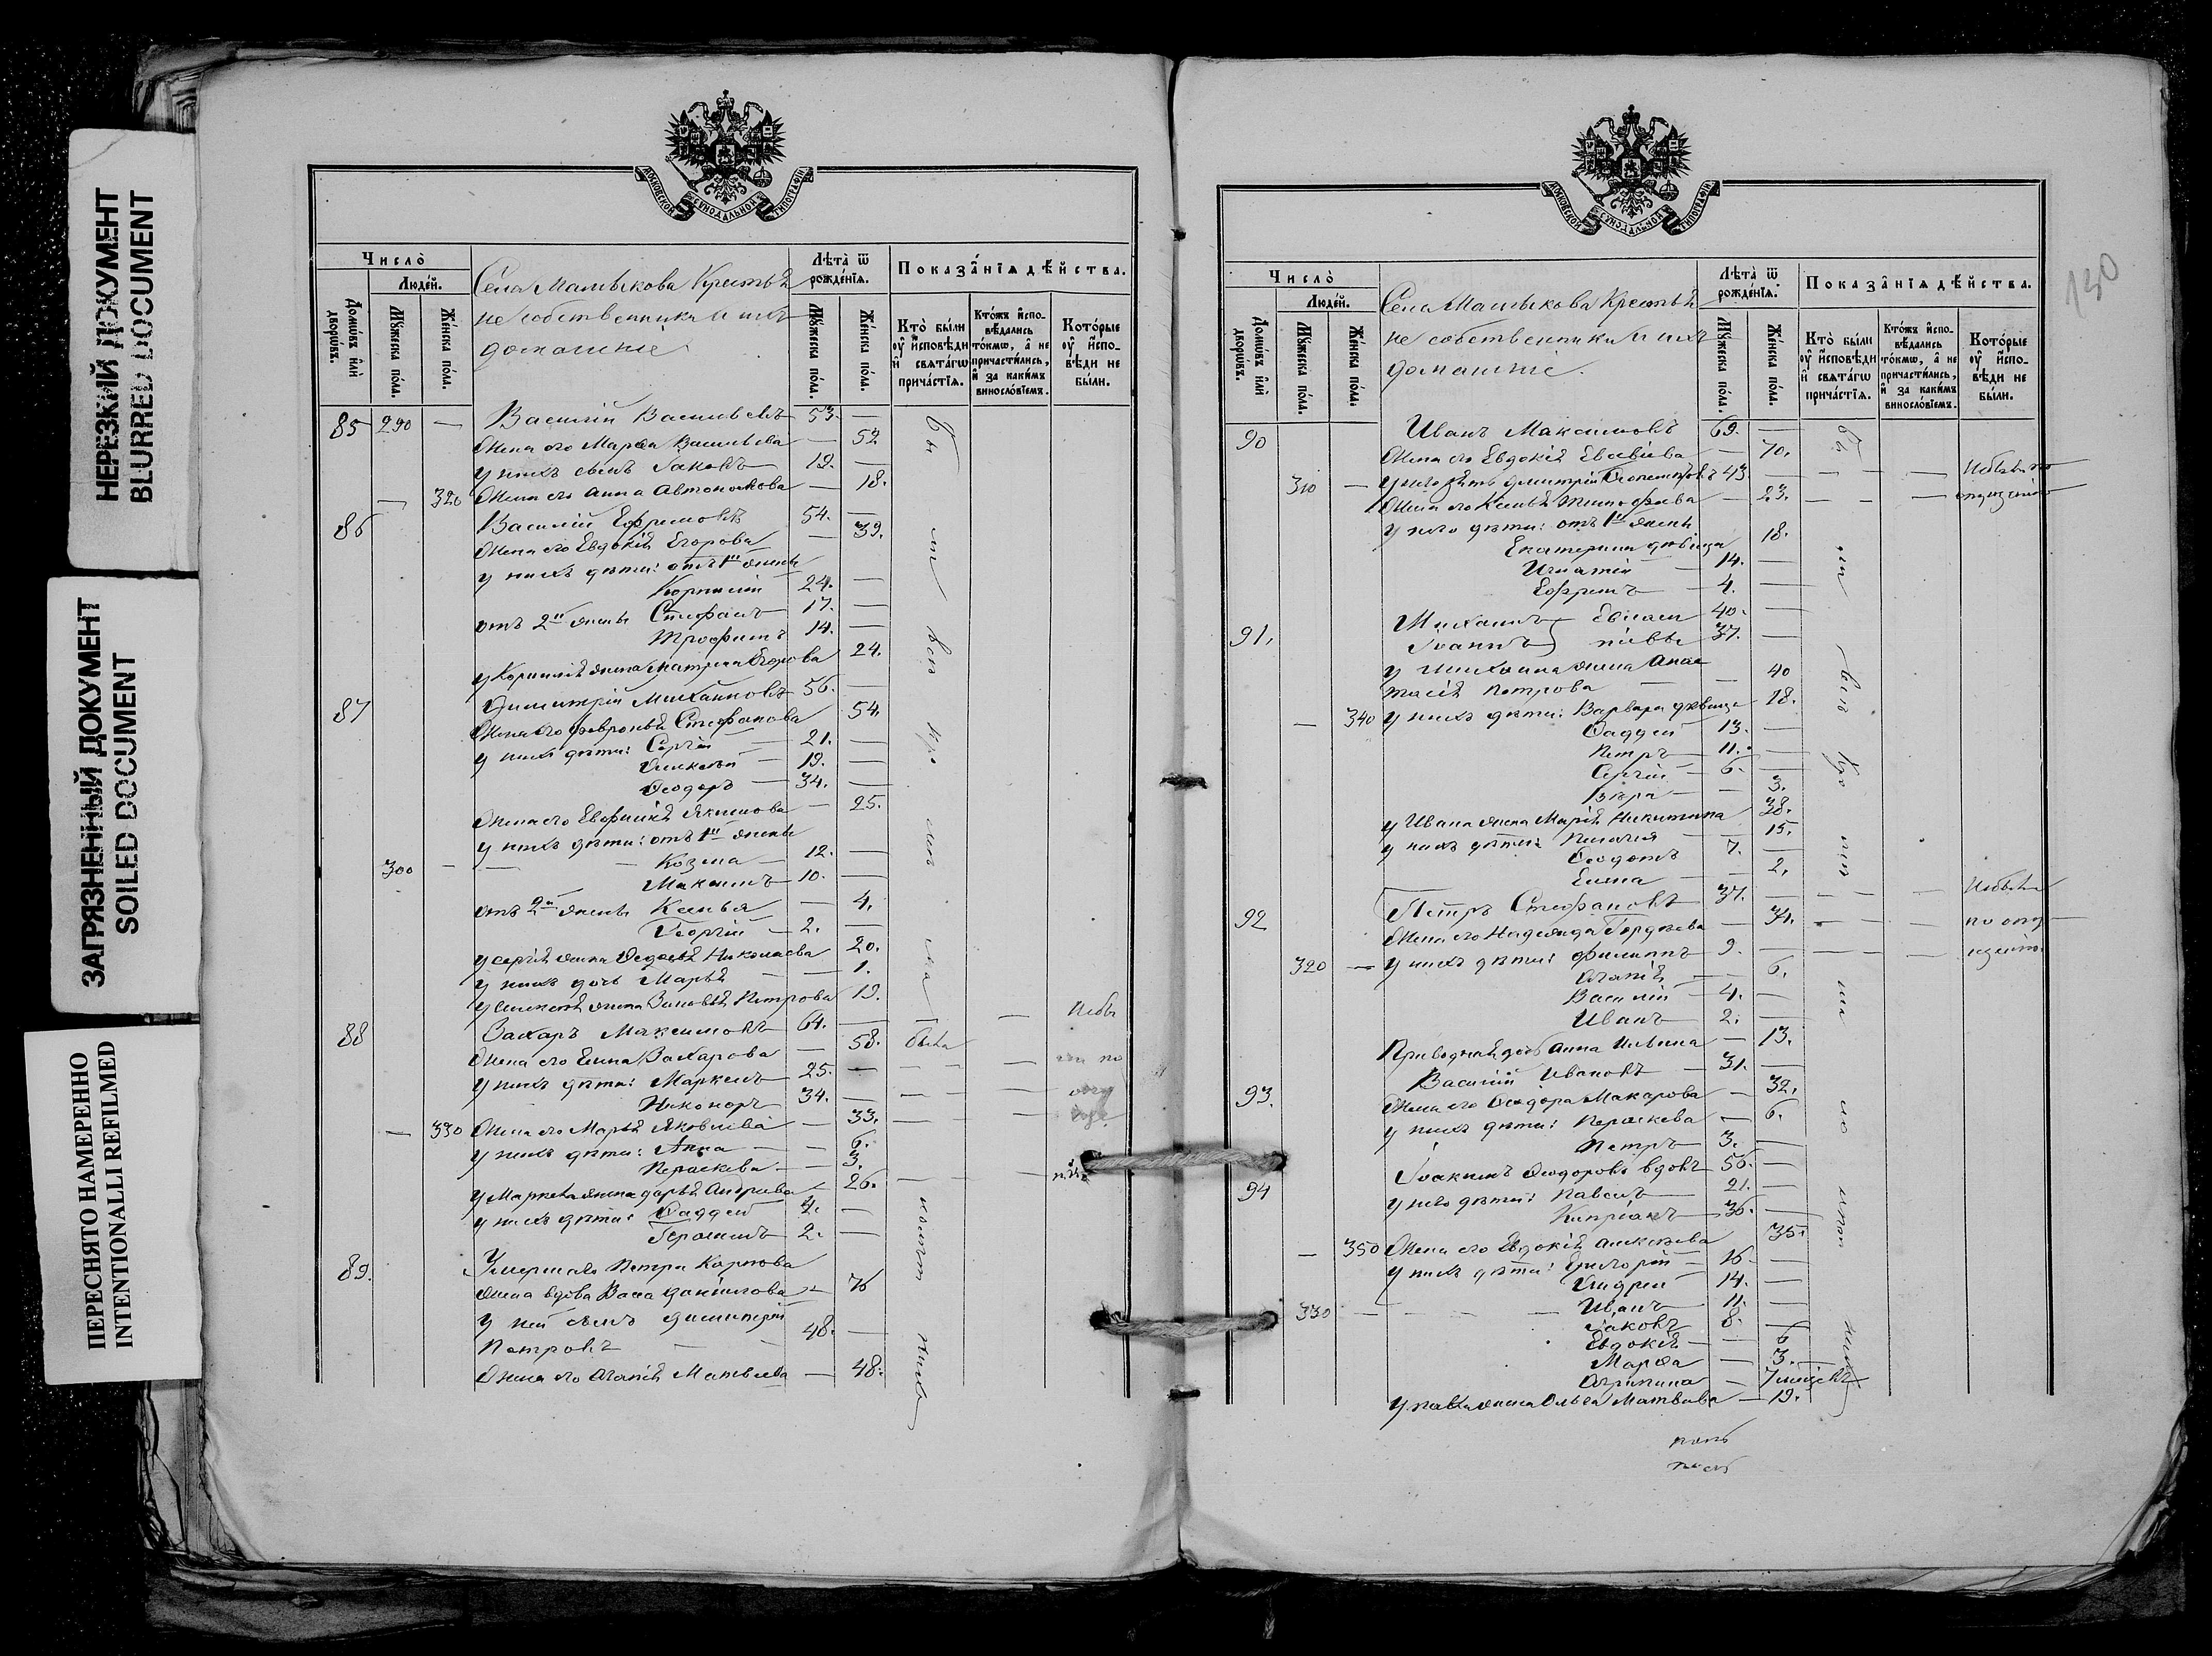 НЕРЕЗКИЙ ДОКУМЕНТ
BLURRED DOCUMENT
ЗАГРЯЗНЕННЫЙ ДОКУМЕНТ
SOILED DOCUMENT
ПЕРЕСНЯТО НАМЕРЕННО
INTENTIONALLI REFILMED
МОСКОВСКОЙ СѴНОДАЛЬНОЙ ТИПОГРАФІИ
Число̀
Люде́й.
Домѡ́въ и҆лѝ дворѡ́въ.
Мꙋ́жеска по́ла.
Же́нска по́ла.
Села Малыкова Крестья
не собственники и ихъ
домашніе
Лѣ́та ѿ рожде́нїѧ.
Мꙋ́жеска по́ла.
Же́нска по́ла.
Показа̂нїѧ дѣ́йства.
Кто̀ бы́ли ᲂу҆ и҆сповѣ́ди и҆ свѧта́гѡ прича́стїѧ.
Кто́жъ и҆спо-вѣ́дались то́кмѡ, а҆ не причасти́лись, и҆ за каки́мъ винословїемъ.
Кото́рые ᲂу҆ и҆спо-вѣ́ди не бы́ли.
85 290 — Василій Васильевъ 53. —
Жена его Марѳа Васильева — 52
у нихъ сынъ Іаковъ 19. —
— 320 Жена его Анна Автономова — 18.
86 Василій Ефремовъ 54. —
Жена его Евдокія Егорова — 39.
у нихъ дѣти: отъ 1й жены
Корнилій 24. —
отъ 2й жены Стефанъ 17. —
Трофимъ 14. —
у Корнилія жена Матрена Егорова 24.
87 Димитрій Михайловъ 56. —
Жена его Февронія Стефанова 54.
у нихъ дѣти: Сергій — 21. —
Алексѣй — 19. —
Ѳеодоръ — 34. —
Жена его Евфимія Якимова — 25.
у нихъ дѣти: отъ 1й жены
300 — — — Козма — 12. —
Максимъ — 10. —
отъ 2й жены Ксенія — 4.
Георгій — 2. —
у Сергія жена Ѳедосья Николаева 20.
у нихъ дочь Марья — — 1.
у Алексѣя жена Зиновья Петрова 19.
88 Захаръ Максимовъ 64. — — — Небы
Жена его Елена Захарова — 58. была
у нихъ дѣти: Маркелъ 25. — — — ли по
Никоноръ 34. — — —
— 330 Жена его Марья Яковлева — 33. —
у нихъ дѣти: Анна — — 6.
Пераскева — — 3.
у Маркела жена Дарья Андреева 26. — — —
у нихъ дѣти: Ѳаддей 4. —
Герасимъ 2. —
89. Умершаго Петра Карпова
жена вдова Васса Данилова — 76
у ней сынъ Димитрій
Петровъ — — 48. —
Жена его Агапія Матвѣева — 48.
МОСКОВСКОЙ СѴНОДАЛЬНОЙ ТИПОГРАФІИ
130
Число̀
Люде́й.
Домѡ́въ и҆лѝ дворѡ́въ.
Мꙋ́жеска по́ла.
Же́нска по́ла.
Села Малыкова Крестья
не собственники и ихъ
домашніе.
Лѣ́та ѿ рожде́нїѧ.
Мꙋ́жеска по́ла.
Же́нска по́ла.
Показа̂нїѧ дѣ́йства.
Кто̀ бы́ли ᲂу҆ и҆сповѣ́ди и҆ свѧта́гѡ прича́стїѧ.
Кто́жъ и҆спо-вѣ́дались то́кмѡ, а҆ не причасти́лись, и҆ за каки́мъ винословїемъ.
Кото́рые ᲂу҆ и҆спо-вѣ́ди не бы́ли.
90 Иванъ Максимовъ 69. —
Жена его Евдокія Евсѣева — 70.
310 — у него зять Димитрій 43. — — — Небыли по
Жена его Ксенья Тимофѣева — 23. — — опущенію
у него дѣти: отъ 1й жены
Екатерина дѣвица 18.
Игнатій — 14. —
Ефремъ — 4. —
91. Михаилъ Евлам 40. —
Іоаннъ піевы 37. —
у Михаила жена Анас
тасія Петрова — — 40
— 340 у нихъ дѣти: Варвара дѣвица 18.
Ѳаддей 13. —
Петръ — 11. —
Сергій — 6. —
Вѣра — — 3.
у Ивана жена Марія Никитина 38.
у нихъ дѣти: Пелагія — 15.
Ѳеодотъ 7. —
Елена — — 2.
92 Петръ Стефановъ 37. — — — Небыли
Жена его Надежда Гордѣева — 34. — — по опу
320 — у нихъ дѣти: Филиппъ 9. — — — щенію
Агапія — 6.
Василій — 4. —
Иванъ — 2. —
Приводная дочь Анна Ильина — 13.
93. Василій Ивановъ — 31. —
Жена его Ѳеодора Макарова — 32.
у нихъ дѣти: Пераскева — 6.
Петръ 3. —
94 Іоакимъ Ѳеодоровъ вдовъ 56. —
у него дѣти: Павелъ — 21. —
Кипріанъ — 36. —
— 350 Жена его Евдокія Алексѣева 35.
у нихъ дѣти: Григорій — 16. —
Андрей 14. —
330 — — — Иванъ — 11. —
Іаковъ — 8. —
Евдокія — — 6
Марѳа — 3.
Агрипина — 7 мѣсяцевъ
у Павла жена Ольга Матвѣева — 19.